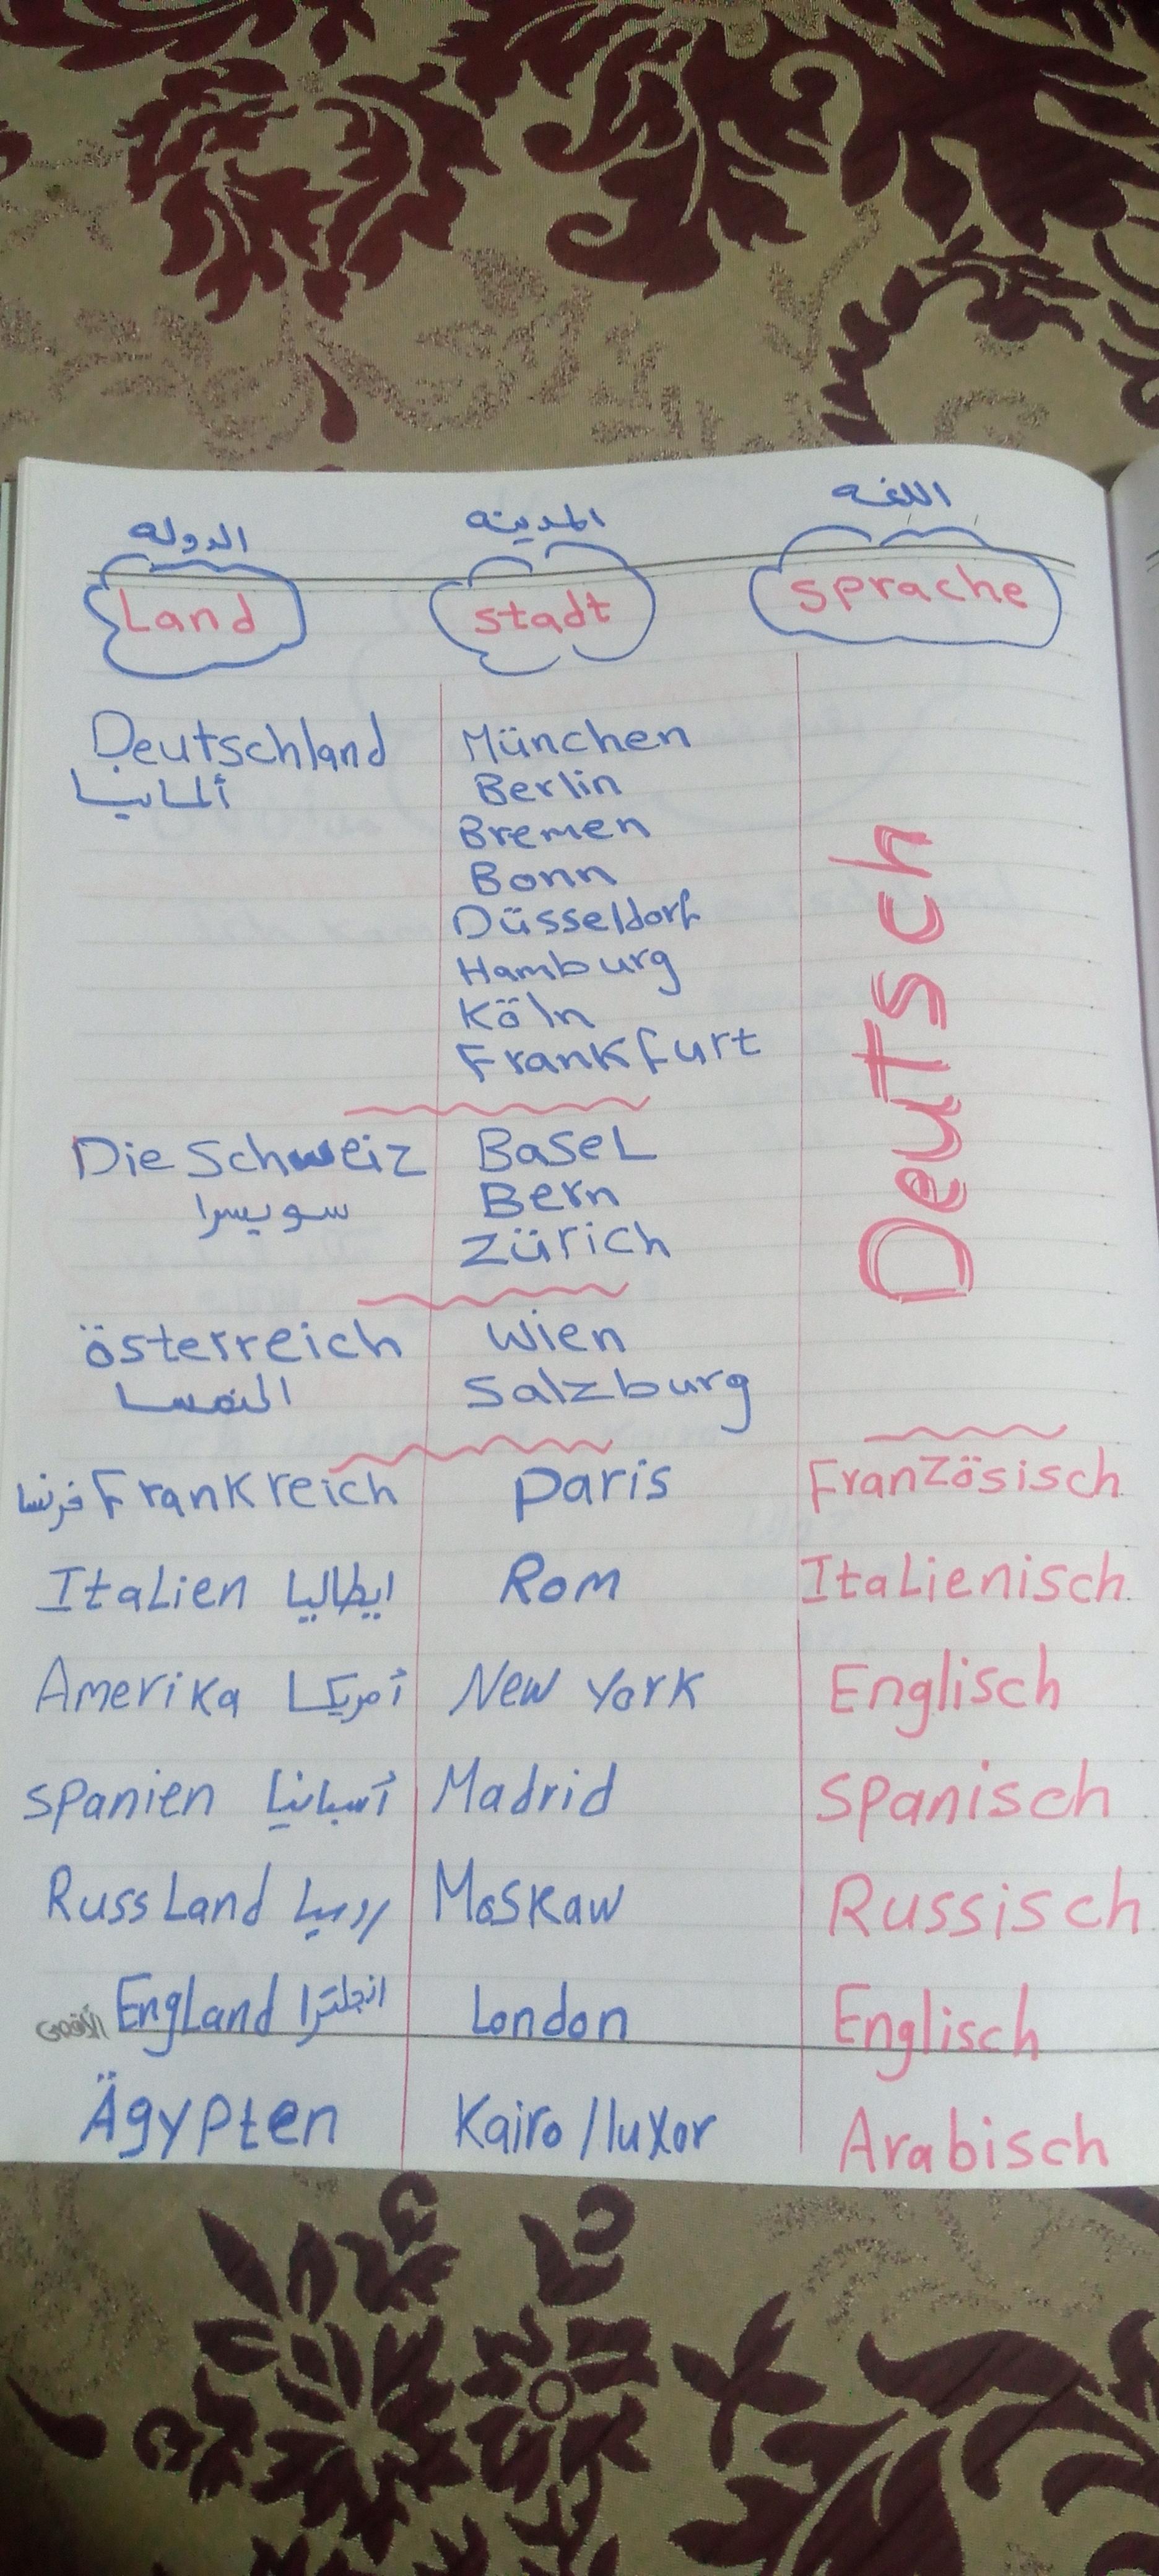 الدوله المدينه اللغه
Land stadt sprache
Deutschland München
ألمانيا Berlin
Bremen
Bonn
Düsseldorf
Hamburg
Köln
Frankfurt
Deutsch
Die Schweiz Basel
سويسرا Bern
Zürich
österreich Wien
النمسا Salzburg
فرنسا Frankreich Paris Französisch
Italien ايطاليا Rom Italienisch
Amerika أمريكا New York Englisch
Spanien أسبانيا Madrid Spanisch
RussLand روسيا Moskaw Russisch
England انجلترا London Englisch
الأقصى
Ägypten Kairo / luxor Arabisch